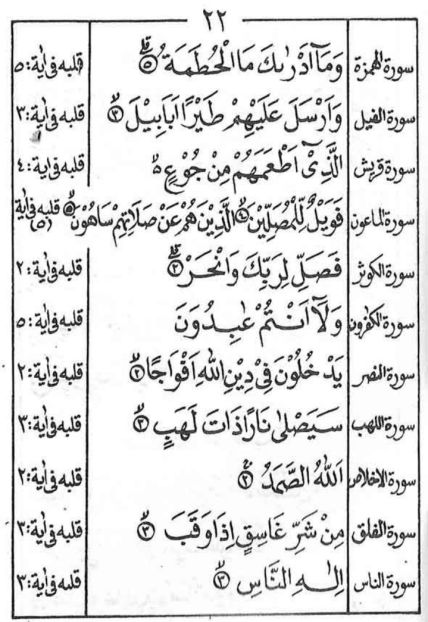 ٢٢
سورة الهمزة وَمَآ اَدْرٰىكَ مَا الْحُطَمَةُ ۝٥ قلبه فى اٰية: ٥
سورة الفيل وَاَرْسَلَ عَلَيْهِمْ طَيْرًا اَبَابِيْلَ ۝٣ قلبه فى اٰية: ٣
سورة قريش الَّذِىْٓ اَطْعَمَهُمْ مِنْ جُوْعٍ قلبه فى اٰية: ٤
سورة الماعون فَوَيْلٌ لِّلْمُصَلِّيْنَ ۝٤ الَّذِيْنَ هُمْ عَنْ صَلَاتِهِمْ سَاهُوْنَ ۝٥ قلبه فى اٰية (٥)
سورة الكوثر فَصَلِّ لِرَبِّكَ وَانْحَرْ ۝٢ قلبه فى اٰية: ٢
سورة الكٰفرون وَلَآ اَنْتُمْ عٰبِدُوْنَ قلبه فى اٰية: ٥
سورة النصر يَدْخُلُوْنَ فِىْ دِيْنِ اللّٰهِ اَفْوَاجًا ۝٢ قلبه فى اٰية: ٢
سورة اللهب سَيَصْلٰى نَارًا ذَاتَ لَهَبٍ ۝٣ قلبه فى اٰية: ٣
سورة الاخلاص اَللّٰهُ الصَّمَدُ ۝٢ قلبه فى اٰية: ٢
سورة الفلق مِنْ شَرِّ غَاسِقٍ اِذَا وَقَبَ ۝٣ قلبه فى اٰية: ٣
سورة الناس اِلٰهِ النَّاسِ ۝٣ قلبه فى اٰية: ٣